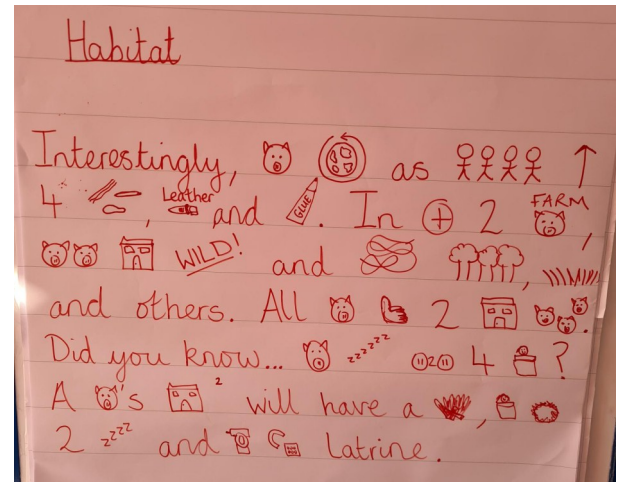 Habitat
Interestingly, as ↑
4 , Leather and GLUE . In + 2 FARM ,
WILD! and ,
and others. All 2 .
Did you know... zzzzzz 020 4 ?
A 's 2 will have a ,
2 zzzz and Latrine.